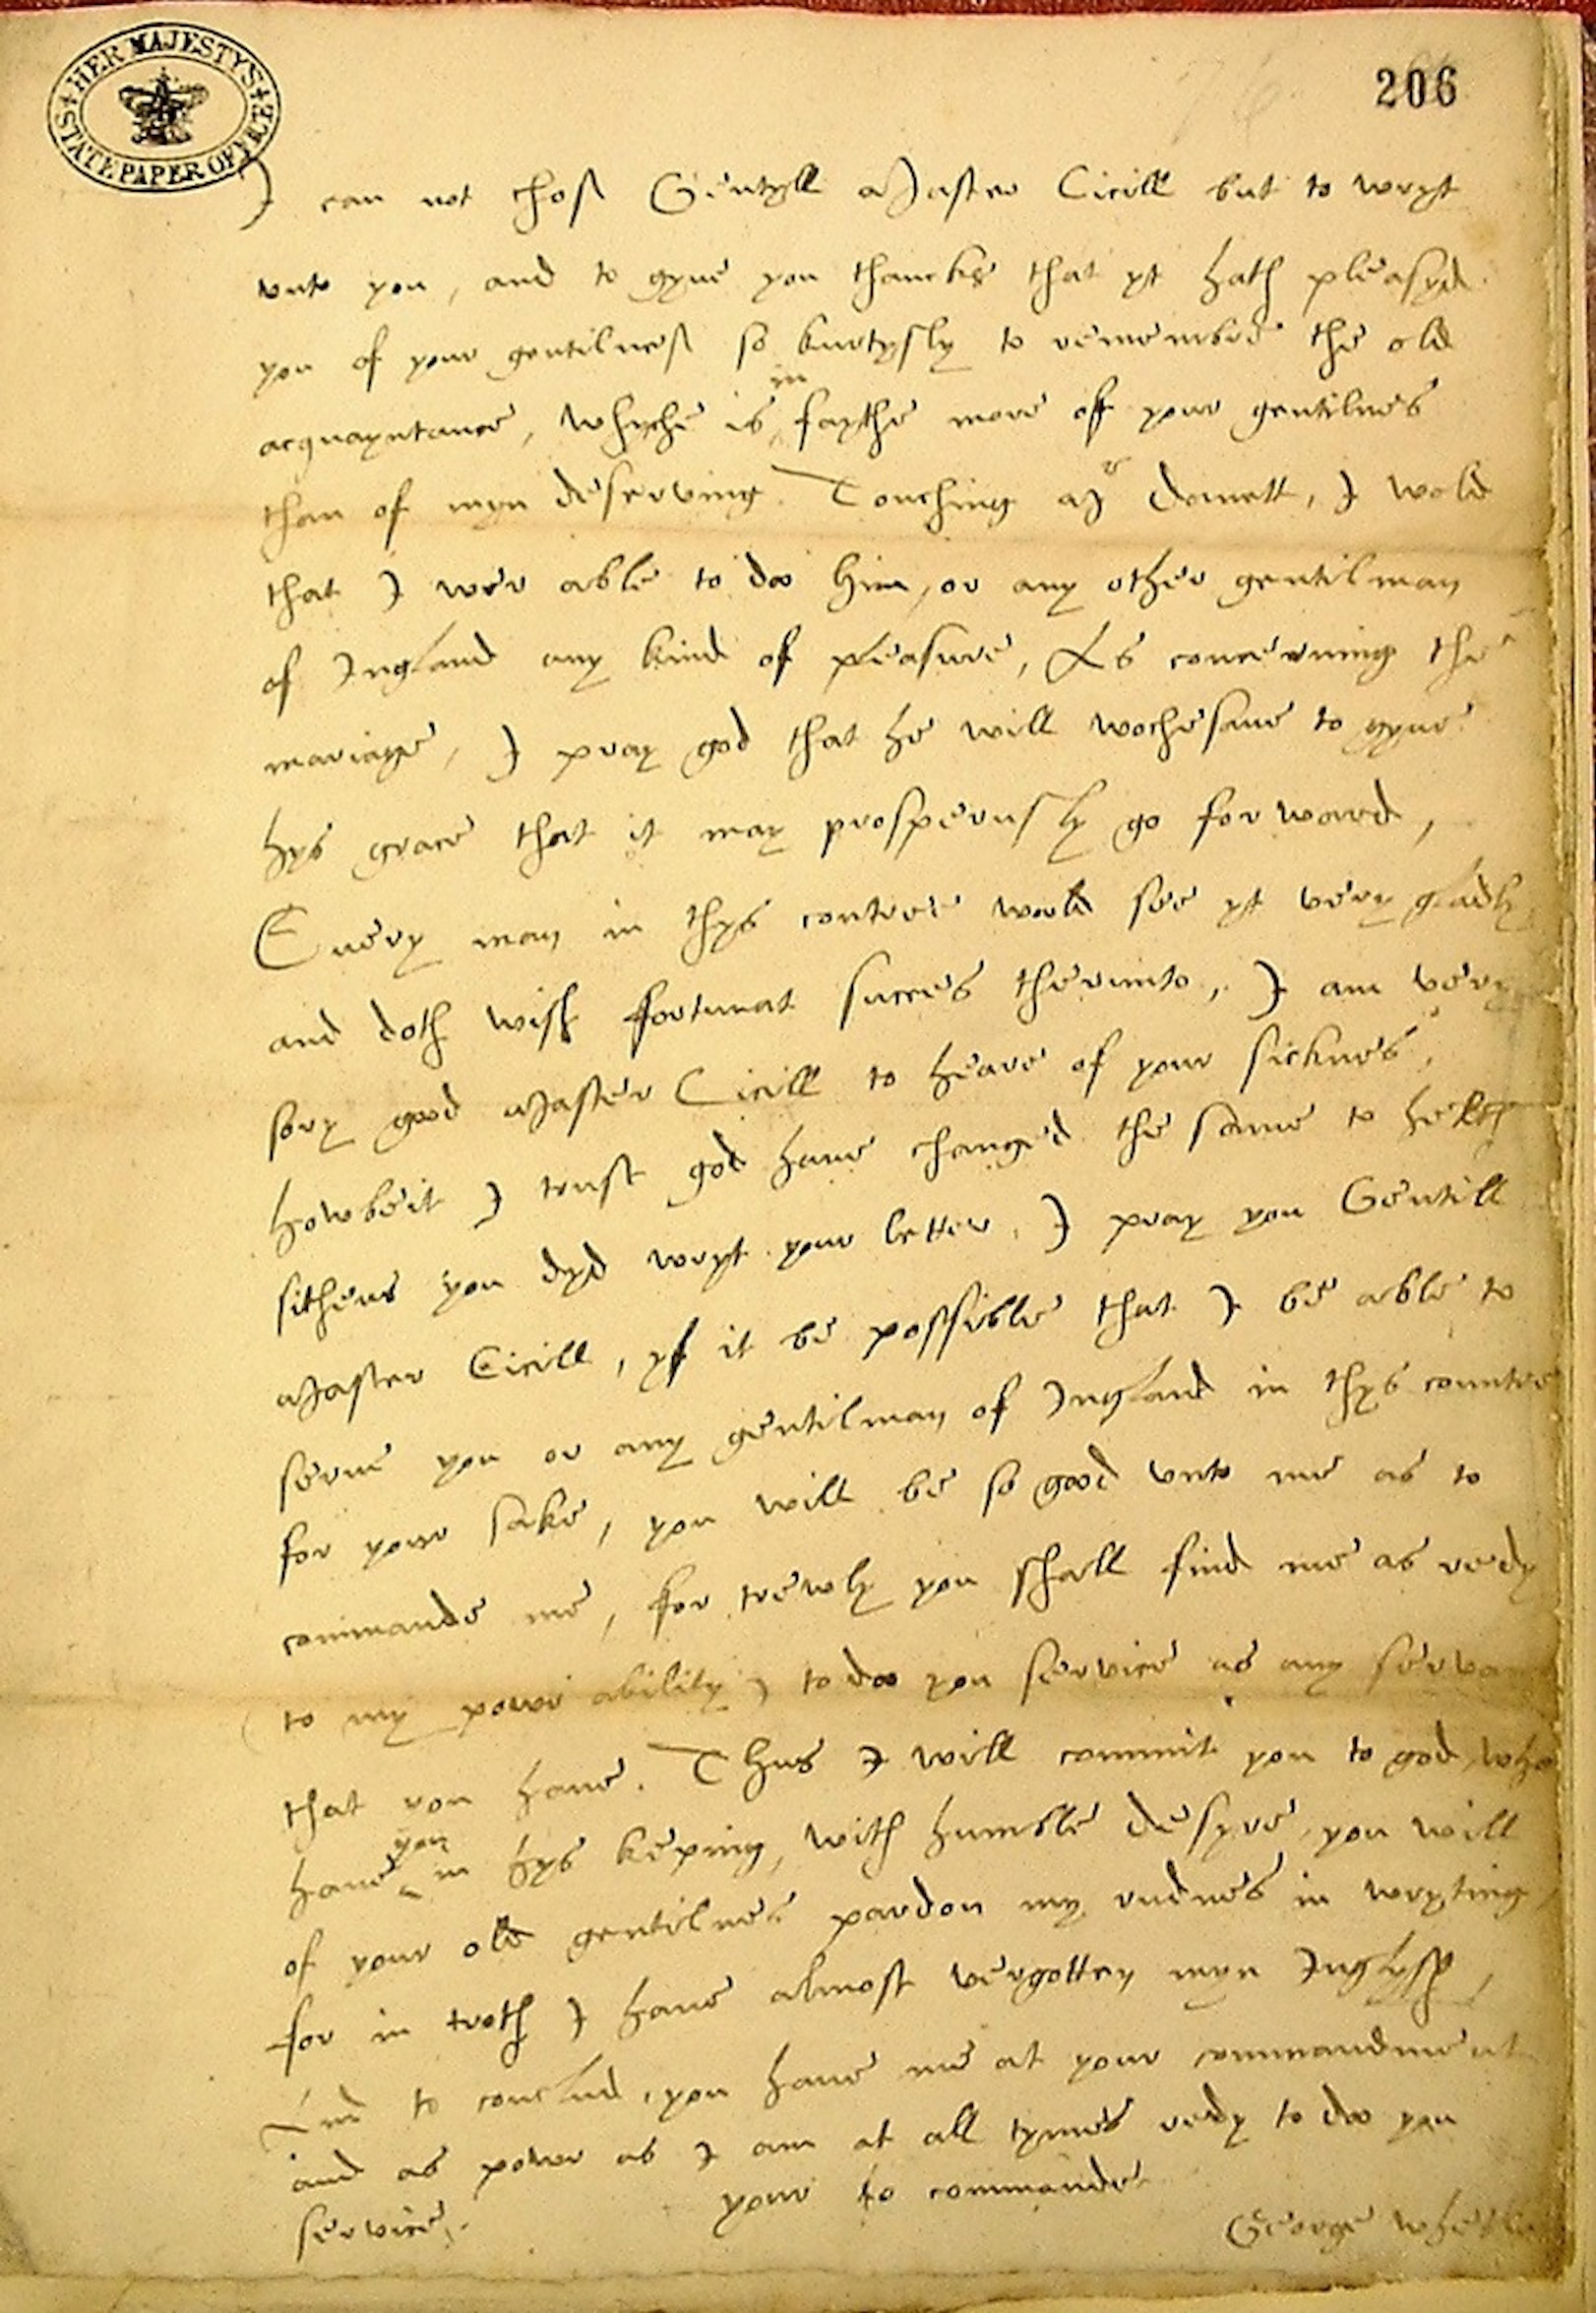 HER MAJESTYS STATE PAPER OFFICE
206
I can not chose Gentyll Master Cicill but to wryt
vnto you, and to gyue you thancks that yt hath pleasyd
you of your gentilness so kurtysly to remembre the old
acquayntance, whyche is in faythe more of your gentilnes
than of myn deserving. Touching Mr Damett, I wold
that I wer able to doo him, or any other gentilman
of Ingland any kind of pleasure, As concerning the
mariage, I pray god that he will wochesaue to gyue
hys grace that it may prosperusly go forward,
Euery man in thys contree wold see yt very gladly
and doth wish fortunat succes therunto, I am very
sory good Master Cicill to heare of your sicknes,
howbeit I trust god haue changed the same to helth
sithens you dyd wryt your letter, I pray you Gentill
Master Cicill, yf it be possible that I be able to
serue you or any gentilman of Ingland in thys countre
for your sake, you will be so good vnto me as to
commande me, for trewly you shall find me as redy
to my powr ability, to doo you service as any
that you haue. Thus I will commit you to god, who
haue you in hys keping, with humble desyre, you will
of your old gentilnes pardon my rudnes in wryting,
for in troth I haue almost vergotten myn Inglysh,
And to conclud, you haue me at your commandment
and as power as I am at all tymes redy to doo you
service. your to commande
George